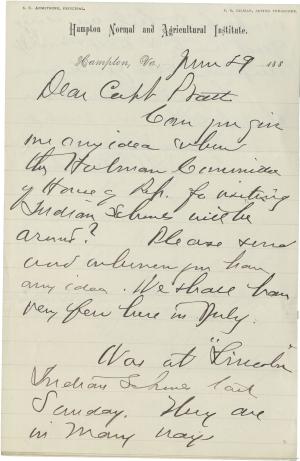 S. C. ARMSTRONG, PRINCIPAL.
F. N. GILMAN, ACTING TREASURER.
Hampton Normal and Agricultural Institute.
Hampton, Va., June 29 188
Dear Capt Pratt
Can you give
me any idea when
the Holman Committee
of House of Reps. for visiting
Indian Schools will be
around? Please send
word whenever you have
any idea. We shall have
very few here in July.
Was at "Lincoln"
Indian School last
Sunday. They are
in many ways